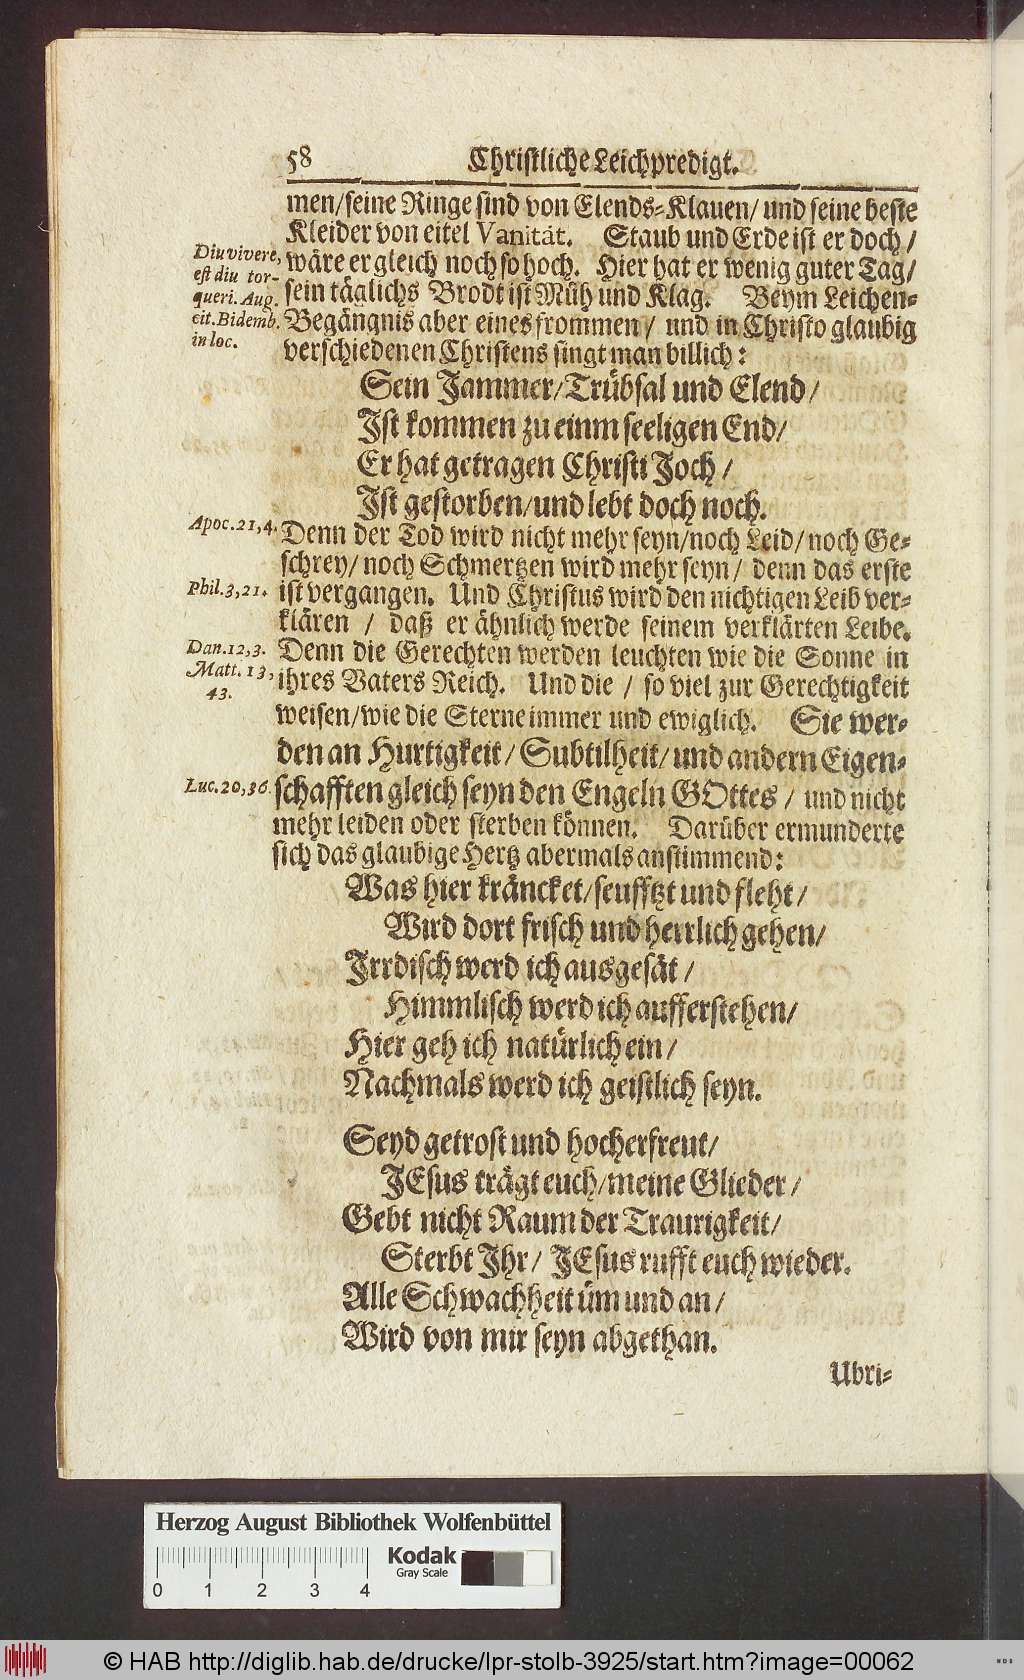 58 Christliche Leichpredigt.
men/ seine Ringe sind von Elends-Klauen/ und seine beste
Kleider von eitel Vanität. Staub und Erde ist er doch/
wäre er gleich noch so hoch. Hier hat er wenig guter Tag/
sein täglichs Brodt ist Müh und Klag. Beym Leichen-
Begängnis aber eines frommen/ und in Christo glaubig
verschiedenen Christens singt man billich:
Diu vivere,
est diu tor-
queri. Aug.
cit. Bidemb.
in loc.
Sein Jammer/ Trübsal und Elend/
Ist kommen zu einm seeligen End/
Er hat getragen Christi Joch/
Ist gestorben/ und lebt doch noch.
Apoc. 21, 4.
Denn der Tod wird nicht mehr seyn/ noch Leid/ noch Ge-
schrey/ noch Schmertzen wird mehr seyn/ denn das erste
Phil. 3, 21.
ist vergangen. Und Christus wird den nichtigen Leib ver-
klären / daß er ähnlich werde seinem verklärten Leibe.
Dan. 12, 3.
Denn die Gerechten werden leuchten wie die Sonne in
Matt. 13,
43.
ihres Vaters Reich. Und die / so viel zur Gerechtigkeit
weisen/ wie die Sterne immer und ewiglich. Sie wer-
den an Hurtigkeit/ Subtilheit/ und andern Eigen-
Luc. 20, 36.
schafften gleich seyn den Engeln GOttes / und nicht
mehr leiden oder sterben können. Darüber ermunderte
sich das glaubige Hertz abermals anstimmend:
Was hier kräncket/ seufftzt und fleht/
Wird dort frisch und herrlich gehen/
Irrdisch werd ich ausgesät /
Himmlisch werd ich aufferstehen/
Hier geh ich natürlich ein/
Nachmals werd ich geistlich seyn.
Seyd getrost und hocherfreut/
JEsus trägt euch/ meine Glieder/
Gebt nicht Raum der Traurigkeit/
Sterbt Ihr/ JEsus rufft euch wieder.
Alle Schwachheit üm und an/
Wird von mir seyn abgethan.
Ubri-
Herzog August Bibliothek Wolfenbüttel
Kodak
Gray Scale
0 1 2 3 4
© HAB http://diglib.hab.de/drucke/lpr-stolb-3925/start.htm?image=00062